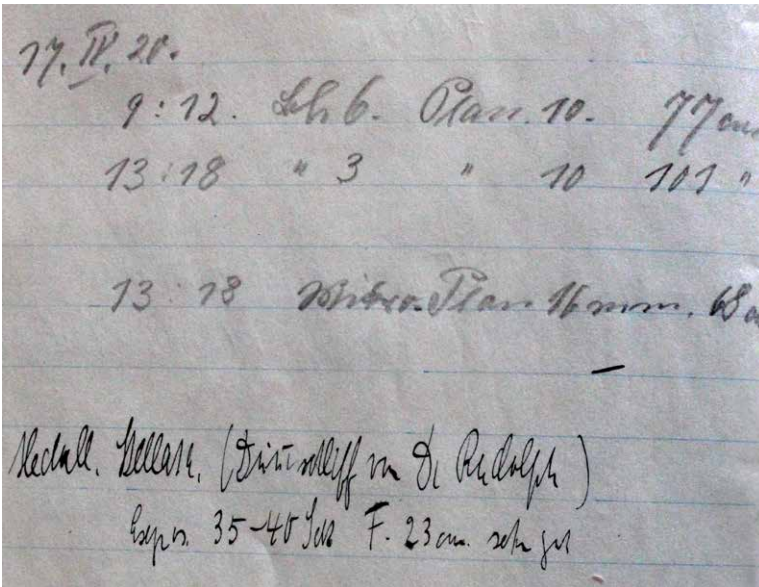 17. IV. 20.
9:12. Sch 6. Plan. 10. 77 cm
13:18 " 3 " 10 101 "
13:18 Mikro. Plan 16 mm. 68 c
(Dünnschliff von Dr Rudolph)
Expos. 35-40 Sek F. 23 cm. sehr gut